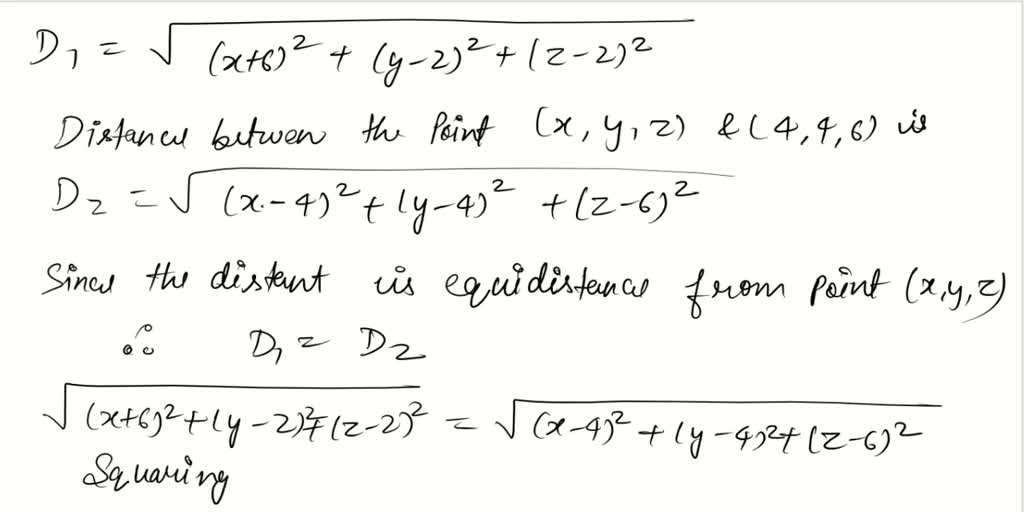 D₁ = √((x+6)² + (y-2)² + (z-2)²)
Distance between the Point (x, y, z) & (4, 4, 6) is
D₂ = √((x-4)² + (y-4)² + (z-6)²)
Since the distant is equidistance from point (x,y,z)
∴ D₁ = D₂
√((x+6)² + (y-2)² + (z-2)²) = √((x-4)² + (y-4)² + (z-6)²)
Squaring